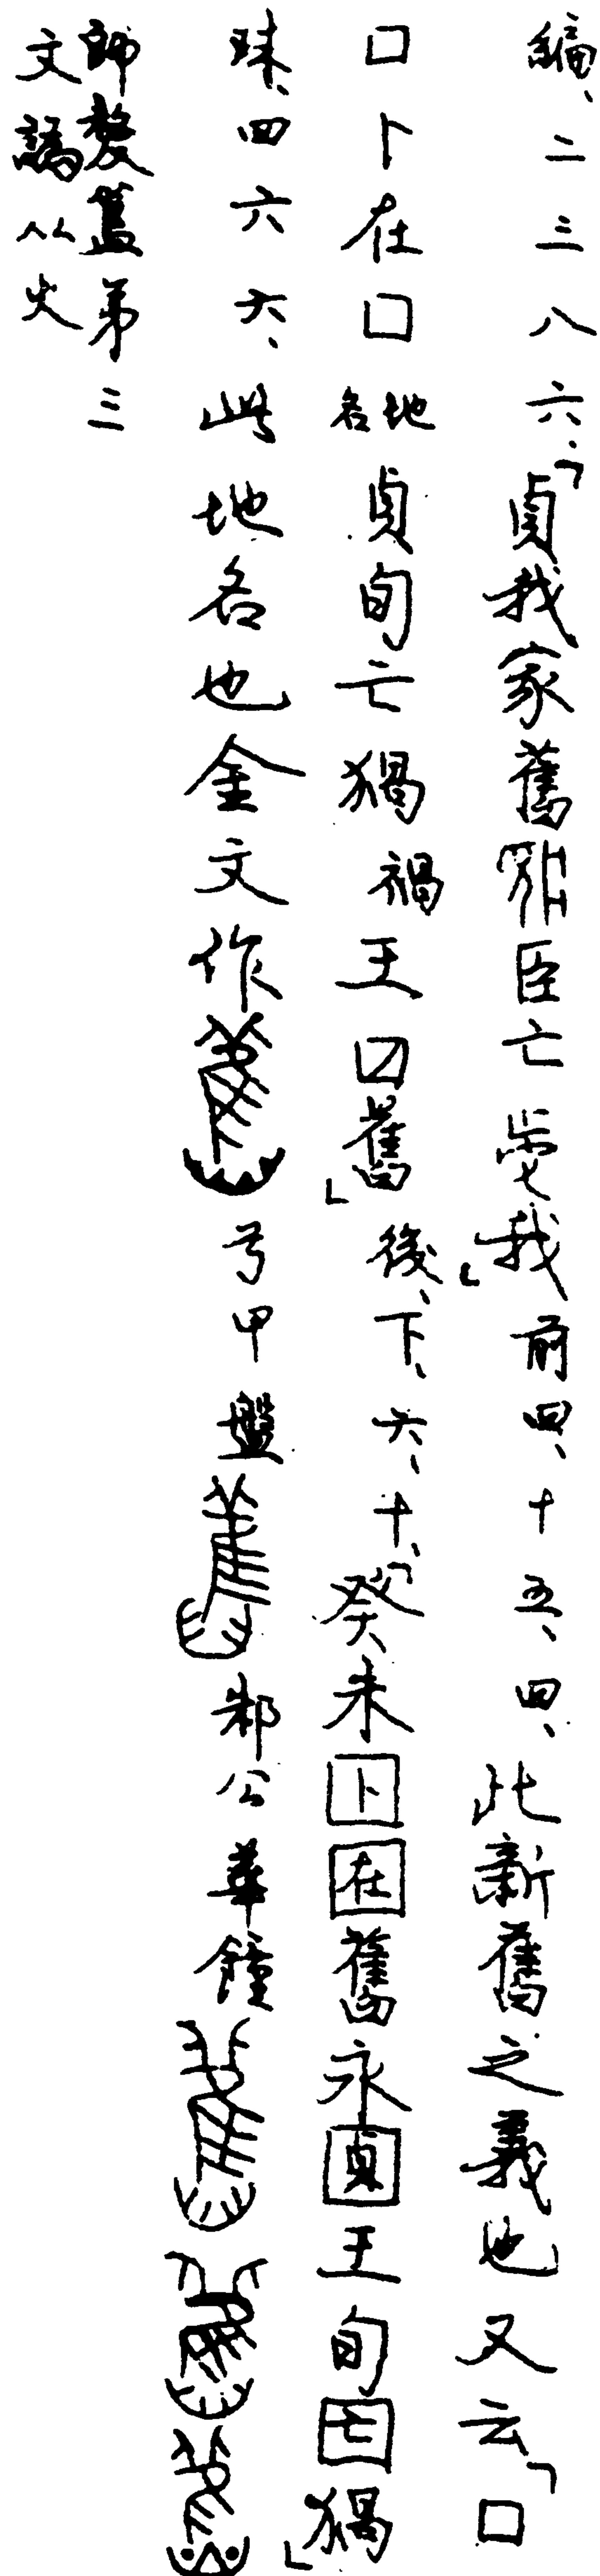 編、二三八六、「貞我家舊臣亡我」前四、十五、四、此新舊之義也又云「口
口卜在口地名貞旬亡猧禍王囗舊」後、下、六、十、「癸未卜在舊永貞王旬亡猧」
珠、四六六、此地名也金文作兮甲盤邾公華鐘
師嫠簋第三
文譌从火